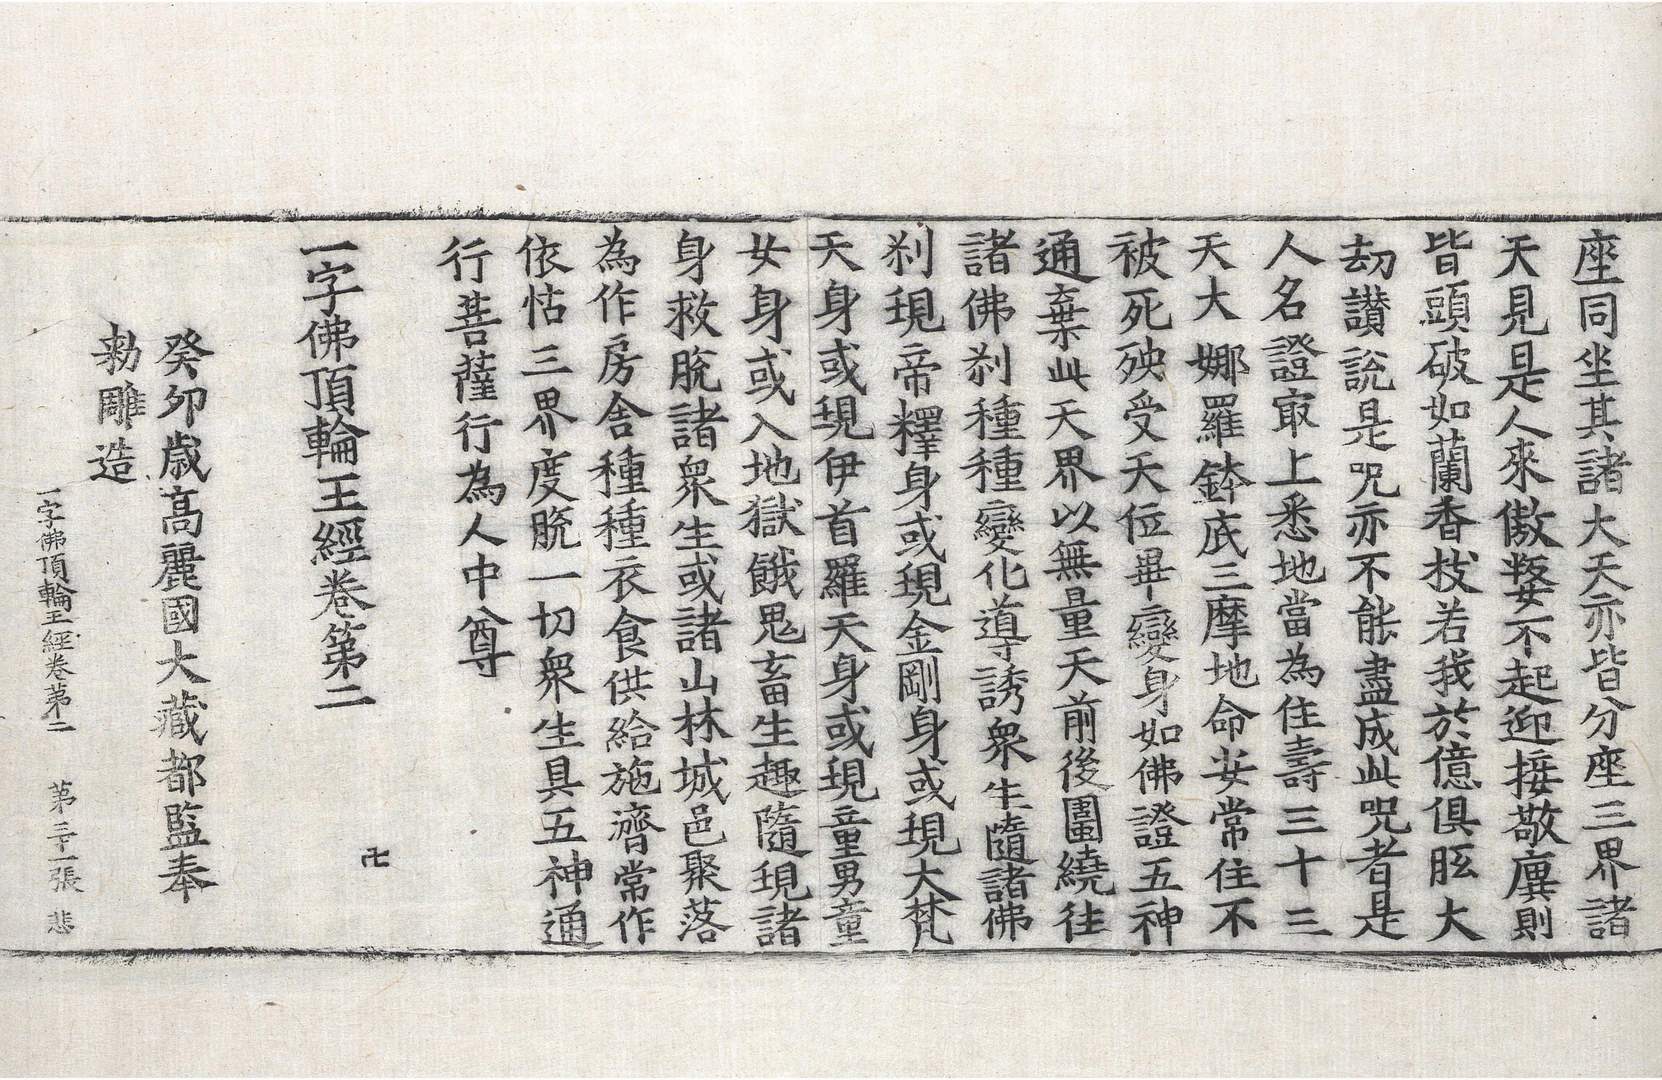 座同坐其諸大天亦皆分座三界諸
天見是人來傲婱不起迎接敬㢖則
皆頭破如蘭香枝若我於億俱胝大
劫讃說是呪亦不能盡成此呪者是
人名證㝡上悉地當為住壽三十三
天大娜羅鉢底三摩地命安常住不
被死殃受天位畢變身如佛證五神
通棄此天界以無量天前後圍繞往
諸佛刹種種變化導誘衆生隨諸佛
刹現帝釋身或現金剛身或現大梵
天身或現伊首羅天身或現童男童
女身或入地獄餓鬼畜生趣隨現諸
身救脫諸衆生或諸山林城邑聚落
為作房舍種種衣食供給施濟常作
依怙三界度脫一切衆生具五神通
行菩薩行為人中尊
一字佛頂輪王經卷第二
卍
癸卯歲高麗國大藏都監奉
勅雕造
一字佛頂輪王經卷第二 第二十一張 悲